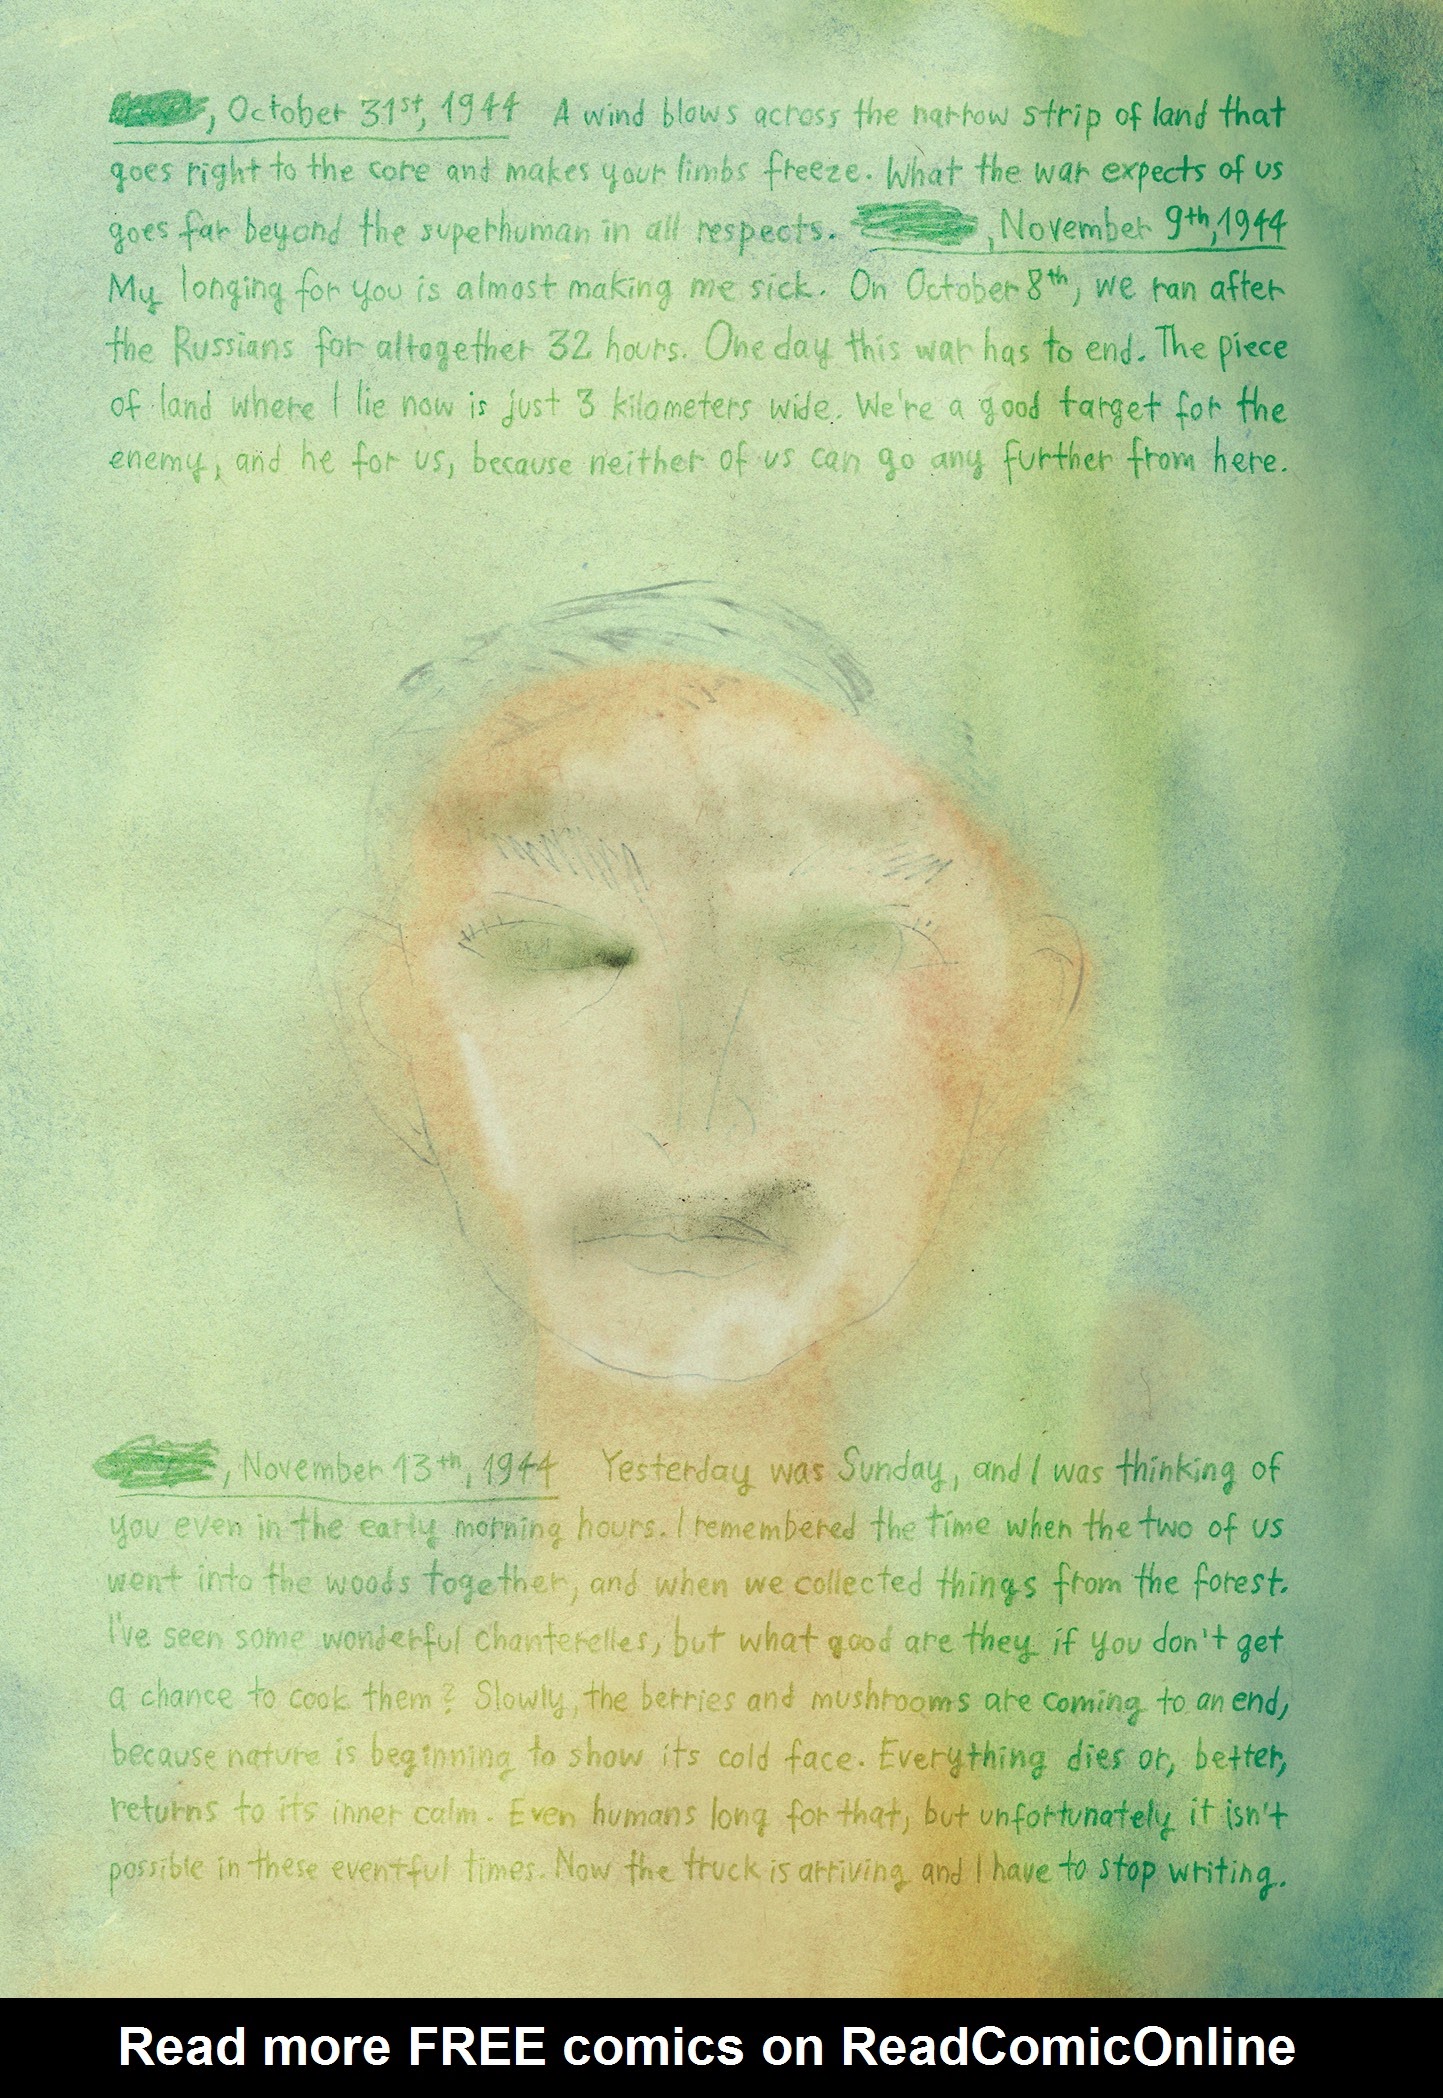 , October 31st, 1944 A wind blows across the narrow strip of land that
goes right to the core and makes your limbs freeze. What the war expects of us
goes far beyond the superhuman in all respects. , November 9th, 1944
My longing for you is almost making me sick. On October 8th, we ran after
the Russians for altogether 32 hours. One day this war has to end. The piece
of land where I lie now is just 3 kilometers wide. We're a good target for the
enemy, and he for us, because neither of us can go any further from here.
, November 13th, 1944 Yesterday was Sunday, and I was thinking of
you even in the early morning hours. I remembered the time when the two of us
went into the woods together, and when we collected things from the forest.
I've seen some wonderful chanterelles, but what good are they if you don't get
a chance to cook them? Slowly, the berries and mushrooms are coming to an end,
because nature is beginning to show its cold face. Everything dies or, better,
returns to its inner calm. Even humans long for that, but unfortunately it isn't
possible in these eventful times. Now the truck is arriving and I have to stop writing.
Read more FREE comics on ReadComicOnline